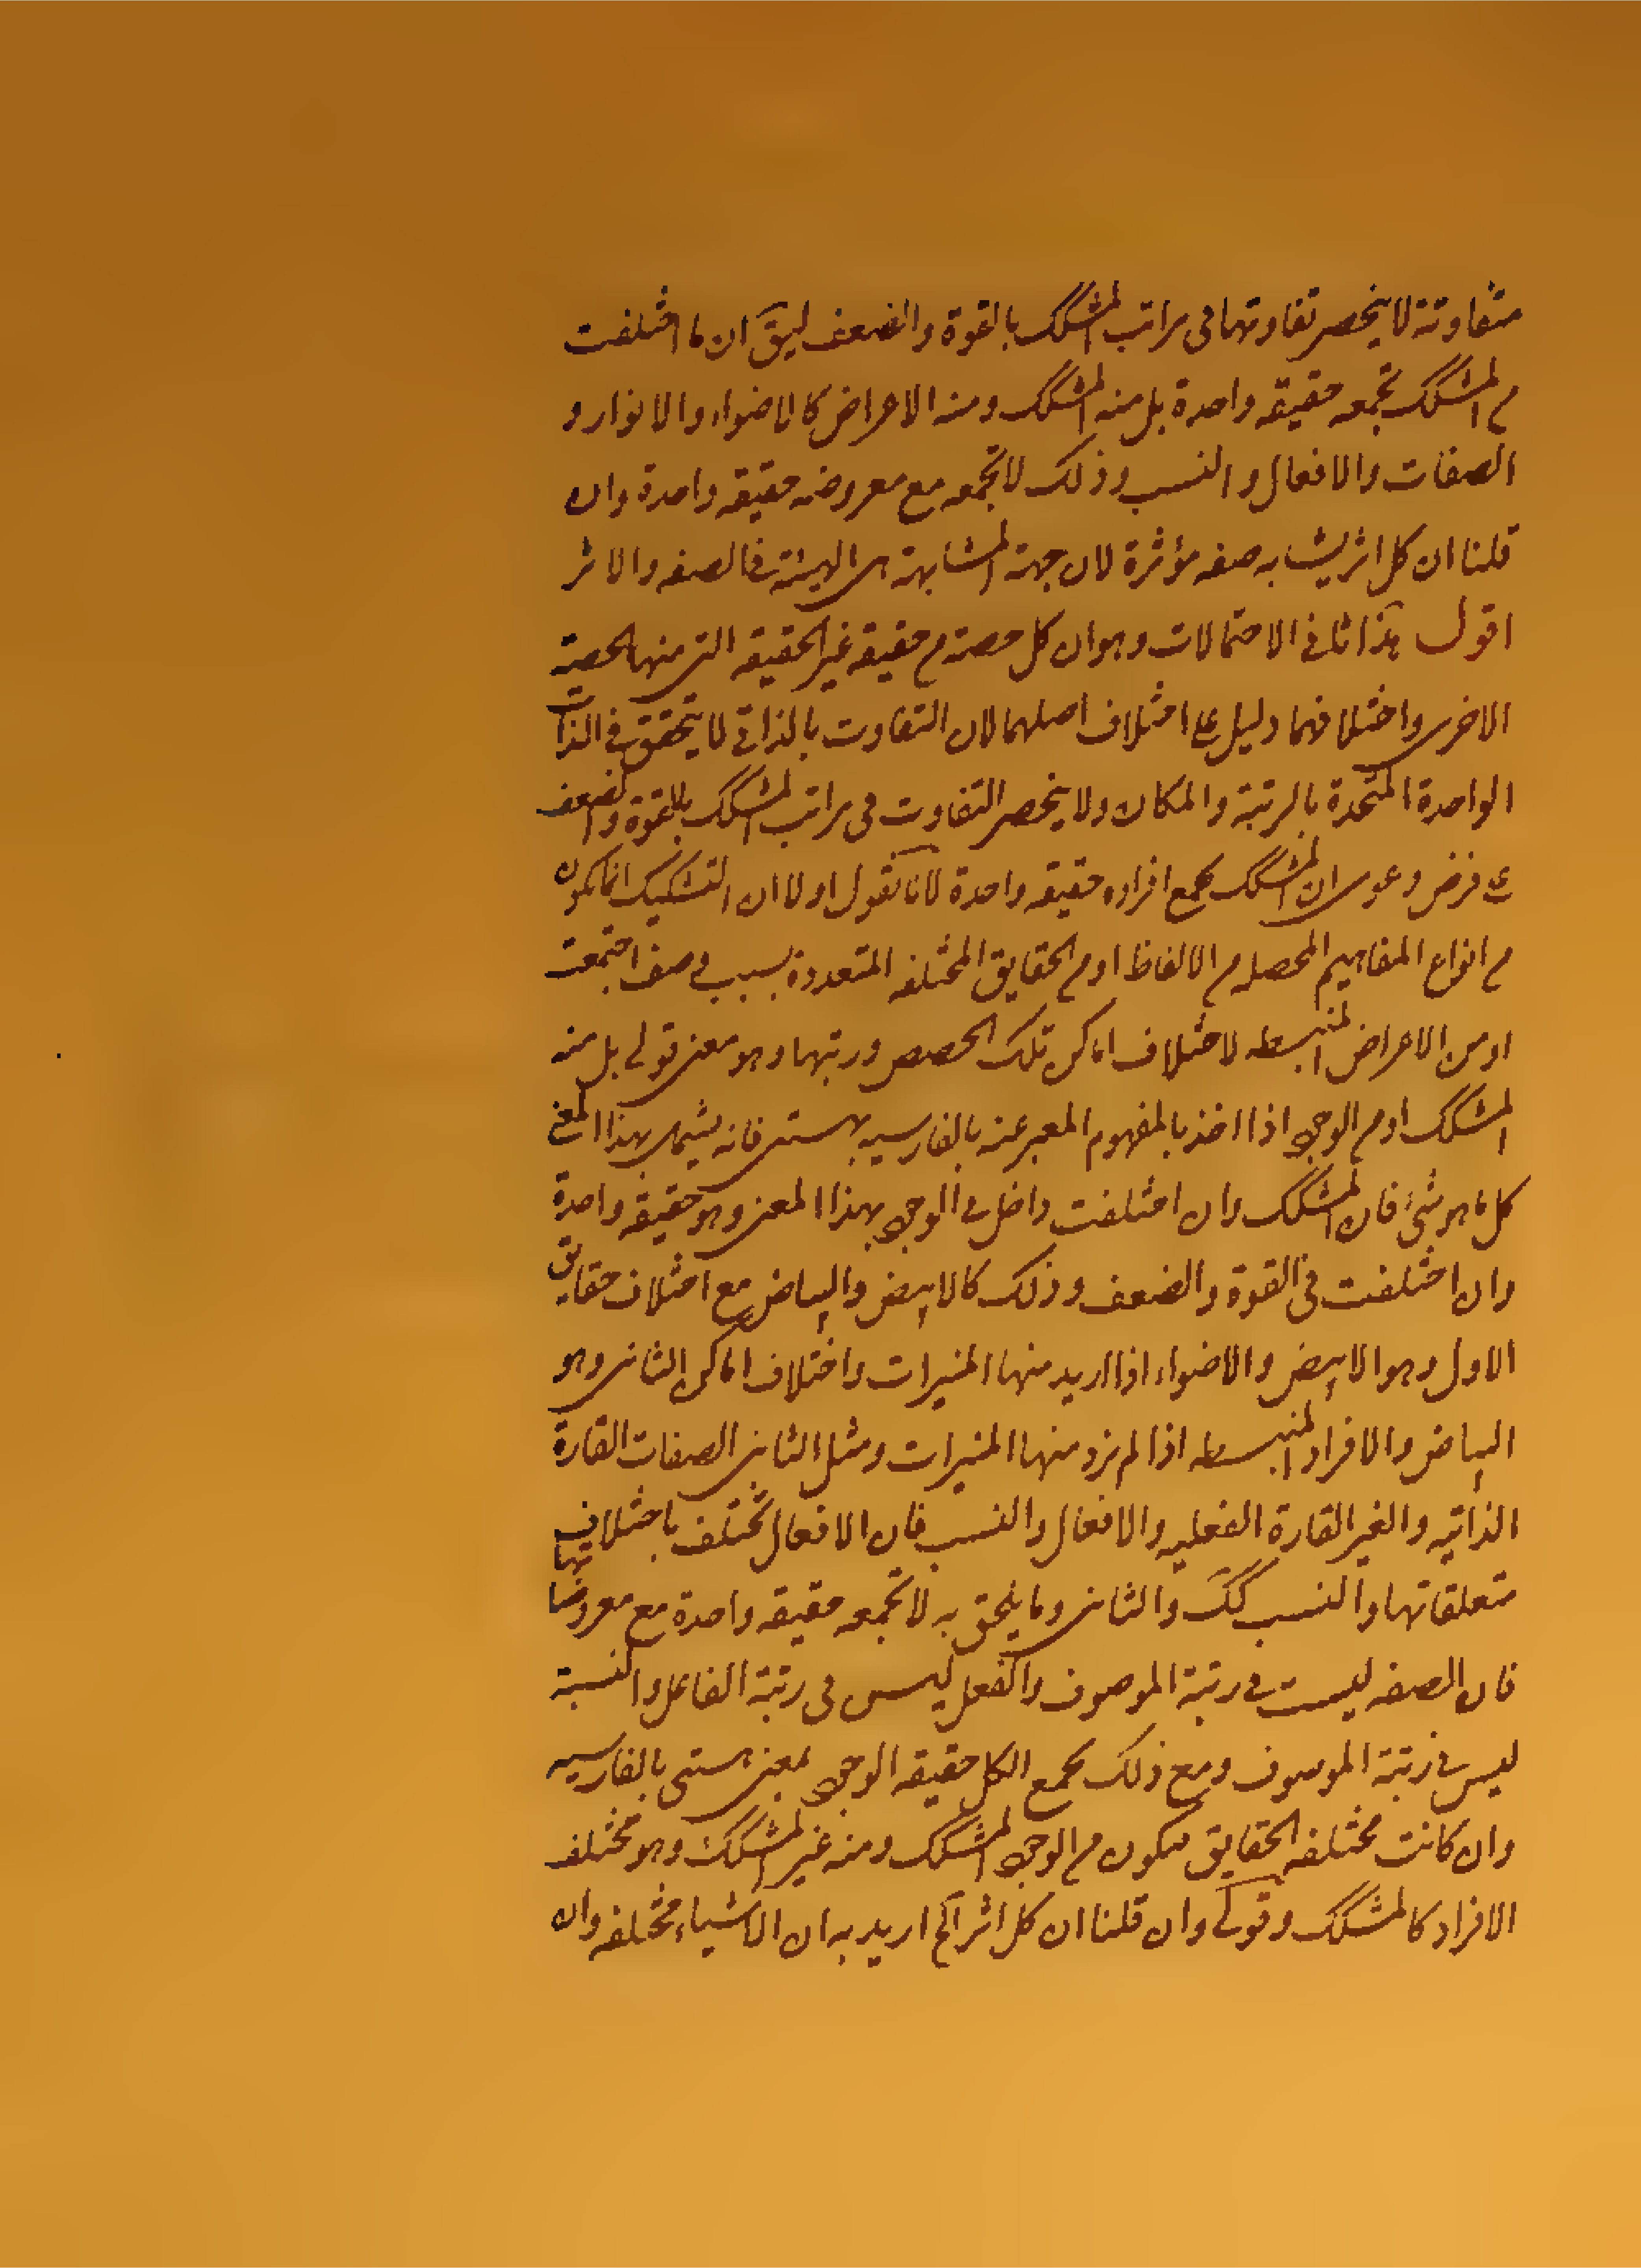 متفاوتة لا ينحصر تفاوتها فى مراتب المشكك بالقوة والضعف ليق ان ما اختلفت
م المشكك تجمعه حقيقه واحدة بل منه المشكك ومنه الاعراض كالاضواء والانوار و
الصفات والافعال والنسب وذلك لا تجمعه مع معروضه حقيقه واحدة وان
قلنا ان كل اثر يشابه صفه مؤثرة لان جهة المشابهة هى الهيئة فالصفه والاثر
اقول هذا ثانى الاحتمالات وهو ان كل حصة م حقيقه غير الحقيقه التى منها الحصة
الاخرى واختلافهما دليل على اختلاف اصلهما لان التفاوت بالذاتى لا يتحقق فى الذات
الواحدة المتحدة بالرتبة والمكان ولا ينحصر التفاوت فى مراتب المشكك بالقوة والضعف
على فرض دعوى ان المشكك يجمع افراده حقيقه واحدة لانا نقول اولا ان التشكيك انما يكون
م انواع المفاهيم المحصله م الالفاظ او م الحقايق المختلفه المتعددة بسبب وصف اجتمعت
او من الاعراض المنبسطه لاختلاف اماكن تلك الحصص ورتبها وهو معنى قولى بل منه
المشكك او م الوجود اذا اخذ بالمفهوم المعبر عنه بالفارسيه بهستى فانه يشمل بهذا المعنى
كل ما هو شئ فان المشكك وان اختلفت داخل فى الوجود بهذا المعنى وهو حقيقه واحدة
وان اختلفت فى القوة والضعف وذلك كالابيض والبياض مع اختلاف حقايق
الاول وهو الابيض والاضواء اذا اريد منها المنيرات واختلاف اماكن الثانى وهو
البياض والافراد المنبسطه اذا لم نرد منها المنيرات ومثل الثانى الصفات القارة
الذاتيه والغير القارة الفعليه والافعال والنسب فان الافعال تختلف باختلاف
متعلقاتها والنسب كك والثانى وما يلحق به لا تجمعه حقيقه واحدة مع معروضاتها
فان الصفه ليست فى رتبة الموصوف والفعل ليس فى رتبة الفاعل والنسبة
ليس فى رتبة الموصوف ومع ذلك يجمع الكل حقيقه الوجود بمعنى هستى بالفارسيه
وان كانت مختلفه الحقايق فيكون م الوجود المشكك ومنه غير المشكك وهو مختلف
الافراد كالمشكك وقولى وان قلنا ان كل اثر الخ اريد به ان الاشياء مختلفه وان